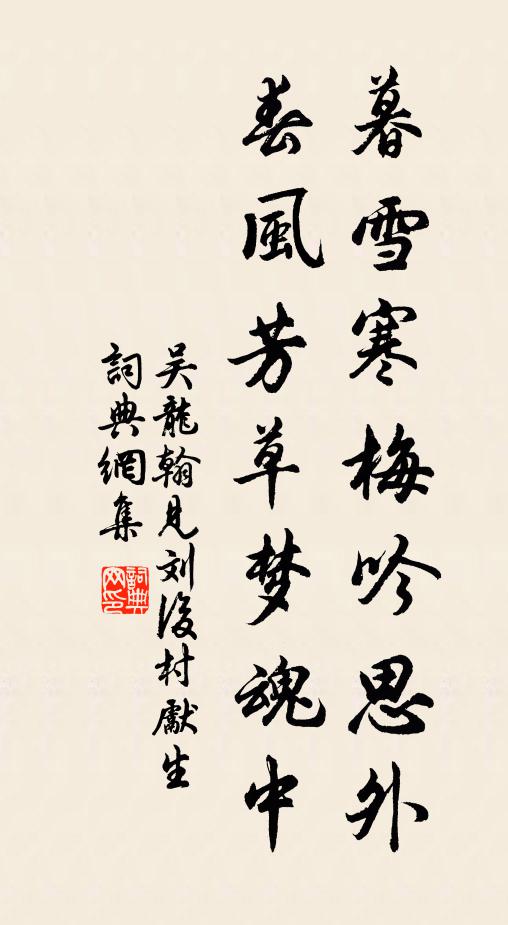 暮雪寒梅吟思外
春風芳草梦魂中
吴龍翰見刘後村獻生
詞典網集
詞典
网印